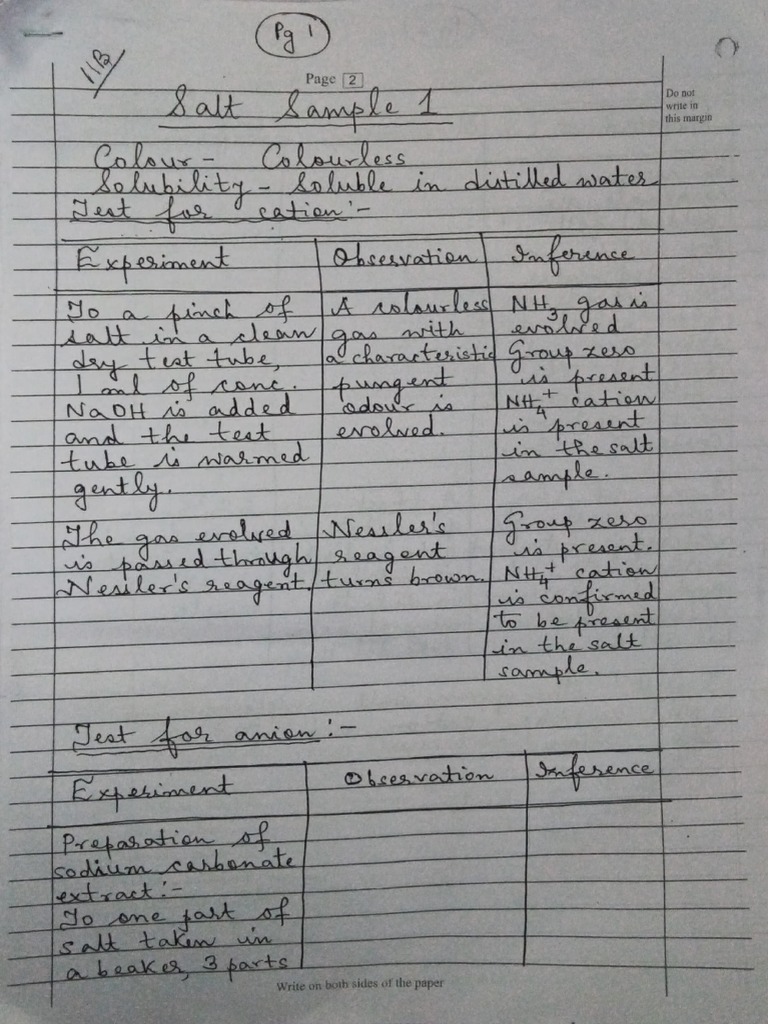 Pg 1
11B
Page 2
Do not
write in
this margin
Salt Sample 1
Colour - Colourless
Solubility - Soluble in distilled water
Test for cation :-
Experiment
Observation
Inference
To a pinch of
salt in a clean
dry test tube,
1 ml of conc.
NaOH is added
and the test
tube is warmed
gently.
A colourless
gas with
a characteristic
pungent
odour is
evolved.
NH3 gas is
evolved
Group zero
is present
NH4+ cation
is present
in the salt
sample.
The gas evolved
is passed through
Nessler's reagent.
Nessler's
reagent
turns brown.
Group zero
is present.
NH4+ cation
is confirmed
to be present
in the salt
sample.
Test for anion :-
Experiment
Observation
Inference
Preparation of
sodium carbonate
extract :-
To one part of
salt taken in
a beaker, 3 parts
Write on both sides of the paper